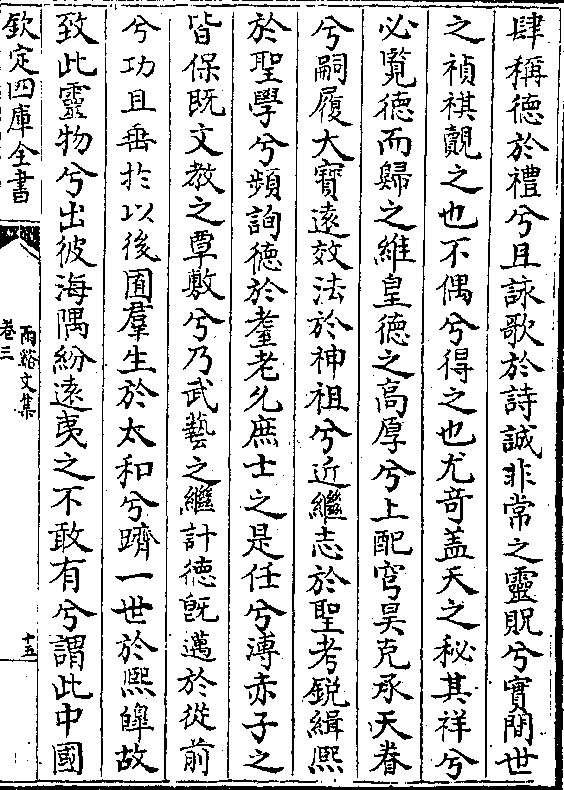 肆稱德於禮兮且詠歌於詩誠非常之靈貺兮實間世
之禎祺覿之也不偶兮得之也尤奇盖天之秘其祥兮
必覧德而歸之維皇德之高厚兮上配穹昊克承天眷
兮嗣履大寳遠效法於神祖兮近繼志於聖考鋭緝熙
於聖學兮頻詢徳於耋老允庶士之是任兮溥赤子之
皆保既文教之覃敷兮乃武藝之繼計徳旣邁於從前
兮功且垂於以後囿羣生於太和兮躋一世於熙皥故
致此靈物兮出彼海隅紛遠夷之不敢有兮謂此中國
欽定四庫全書
兩谿文集
卷三
十五